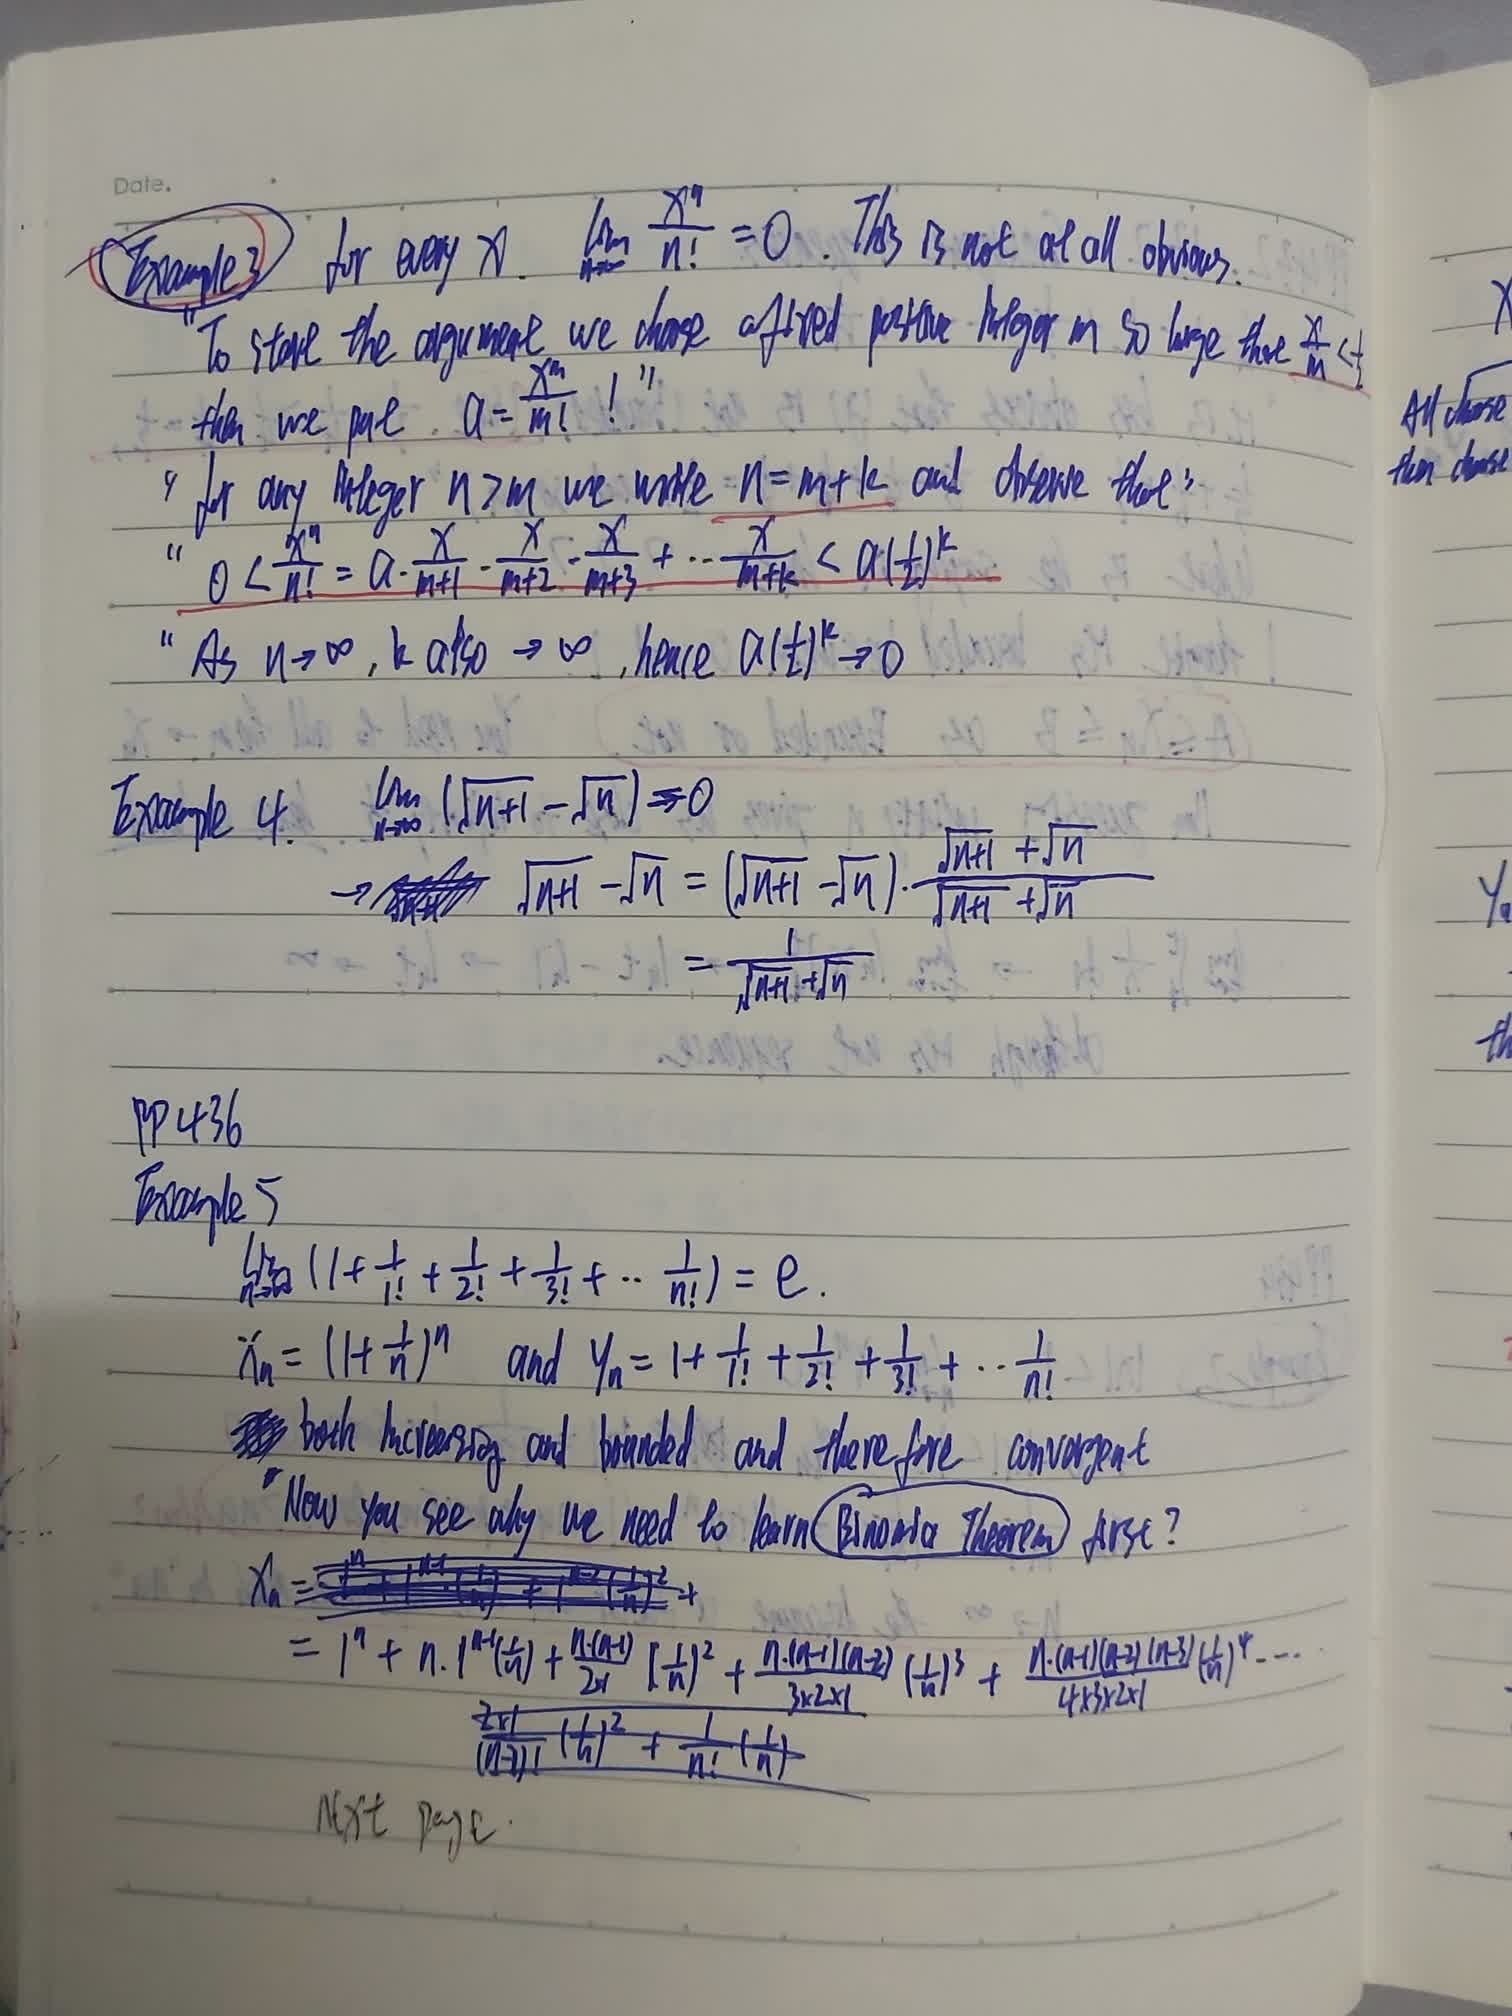 Date.
Example 3 for every x. lim n→∞ xⁿ/n! = 0. This is not at all obvious.
"To start the argument we choose a fixed positive integer m so large that x/m < 1/2
then we put a = xᵐ/m! !"
"for any integer n > m we write n = m + k and observe that"
"0 < xⁿ/n! = a · x/m+1 · x/m+2 · x/m+3 + ·· x/m+k < a(1/2)ᵏ
"As n → ∞, k also → ∞, hence a(1/2)ᵏ → 0
Example 4. lim n→∞ (√n+1 − √n) = 0
→ √n+1 − √n = (√n+1 − √n) · √n+1 + √n / √n+1 + √n
= 1 / √n+1 + √n
PP 436
Example 5
lim n→∞ (1 + 1/1! + 1/2! + 1/3! + ·· 1/n!) = e.
xₙ = (1 + 1/n)ⁿ and yₙ = 1 + 1/1! + 1/2! + 1/3! + ·· 1/n!
both increasing and bounded and therefore convergent
"Now you see why we need to learn Binomia Theorem first?
xₙ = 1ⁿ + 1ⁿ⁻¹ (1/n) + 1ⁿ⁻² (1/n)² +
= 1ⁿ + n · 1ⁿ⁻¹(1/n) + n·(n-1)/2x1 (1/n)² + n·(n-1)(n-2)/3x2x1 (1/n)³ + n·(n-1)(n-2)(n-3)/4x3x2x1 (1/n)⁴ ----
2x1/(n-2)! (1/n)² + 1/n! (1/n)
Next page.
x
All choose
then choose